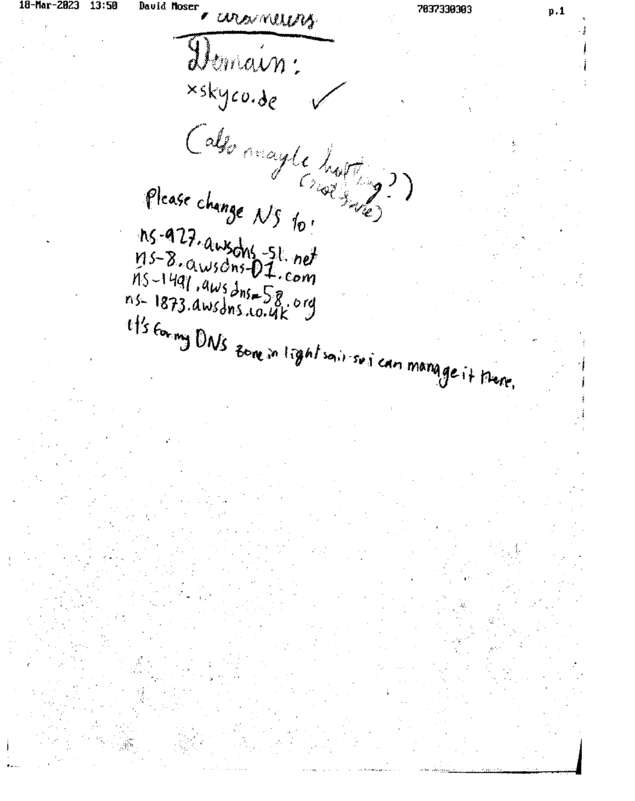 18-Mar-2023 13:50 David Moser 7037330303 p.1
Domain:
xskyco.de ✓
(also mayble hosting?)
(not sure)
Please change NS to:
ns-927.awsdns-51.net
ns-8.awsdns-01.com
ns-1491.awsdns-58.org
ns-1873.awsdns.co.uk
it's for my DNS zone in lightsail so i can manage it there.